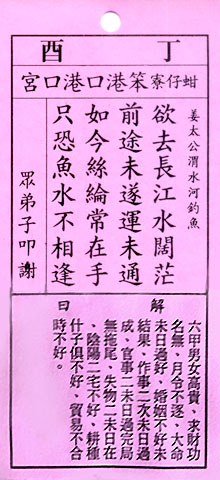 丁酉
蚶仔寮笨港口港口宮
姜太公渭水河釣魚
欲去長江水闊茫
前途未遂運未通
如今絲綸常在手
只恐魚水不相逢
眾弟子叩謝
解曰
六甲男女高貴、求財功
名無、月令不遂、大命
未日過好、婚姻不好未
結果、作事二次未日過
成、官事二未日過完局
無拖尾、失物二未日在
、陰陽二宅不好、耕種
什子俱不好、貿易不合
時不好。